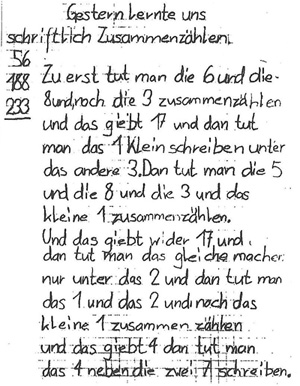 Gestern lernte uns
schriftlich Zusammenzählen.
56
188
233
Zu erst tut man die 6 und die
8 und noch die 3 zusammenzählen
und das giebt 17 und dan tut
man das 1 klein schreiben unter
das andere 3. Dan tut man die 5
und die 8 und die 3 und das
kleine 1 zusammenzählen.
Und das giebt wider 17 und
dan tut man das gleiche machen
nur unter das 2 und dan tut man
das 1 und das 2 und noch das
kleine 1 zusammen zählen
und das giebt 4 dan tut man
das 4 neben die zwei 7 schreiben.